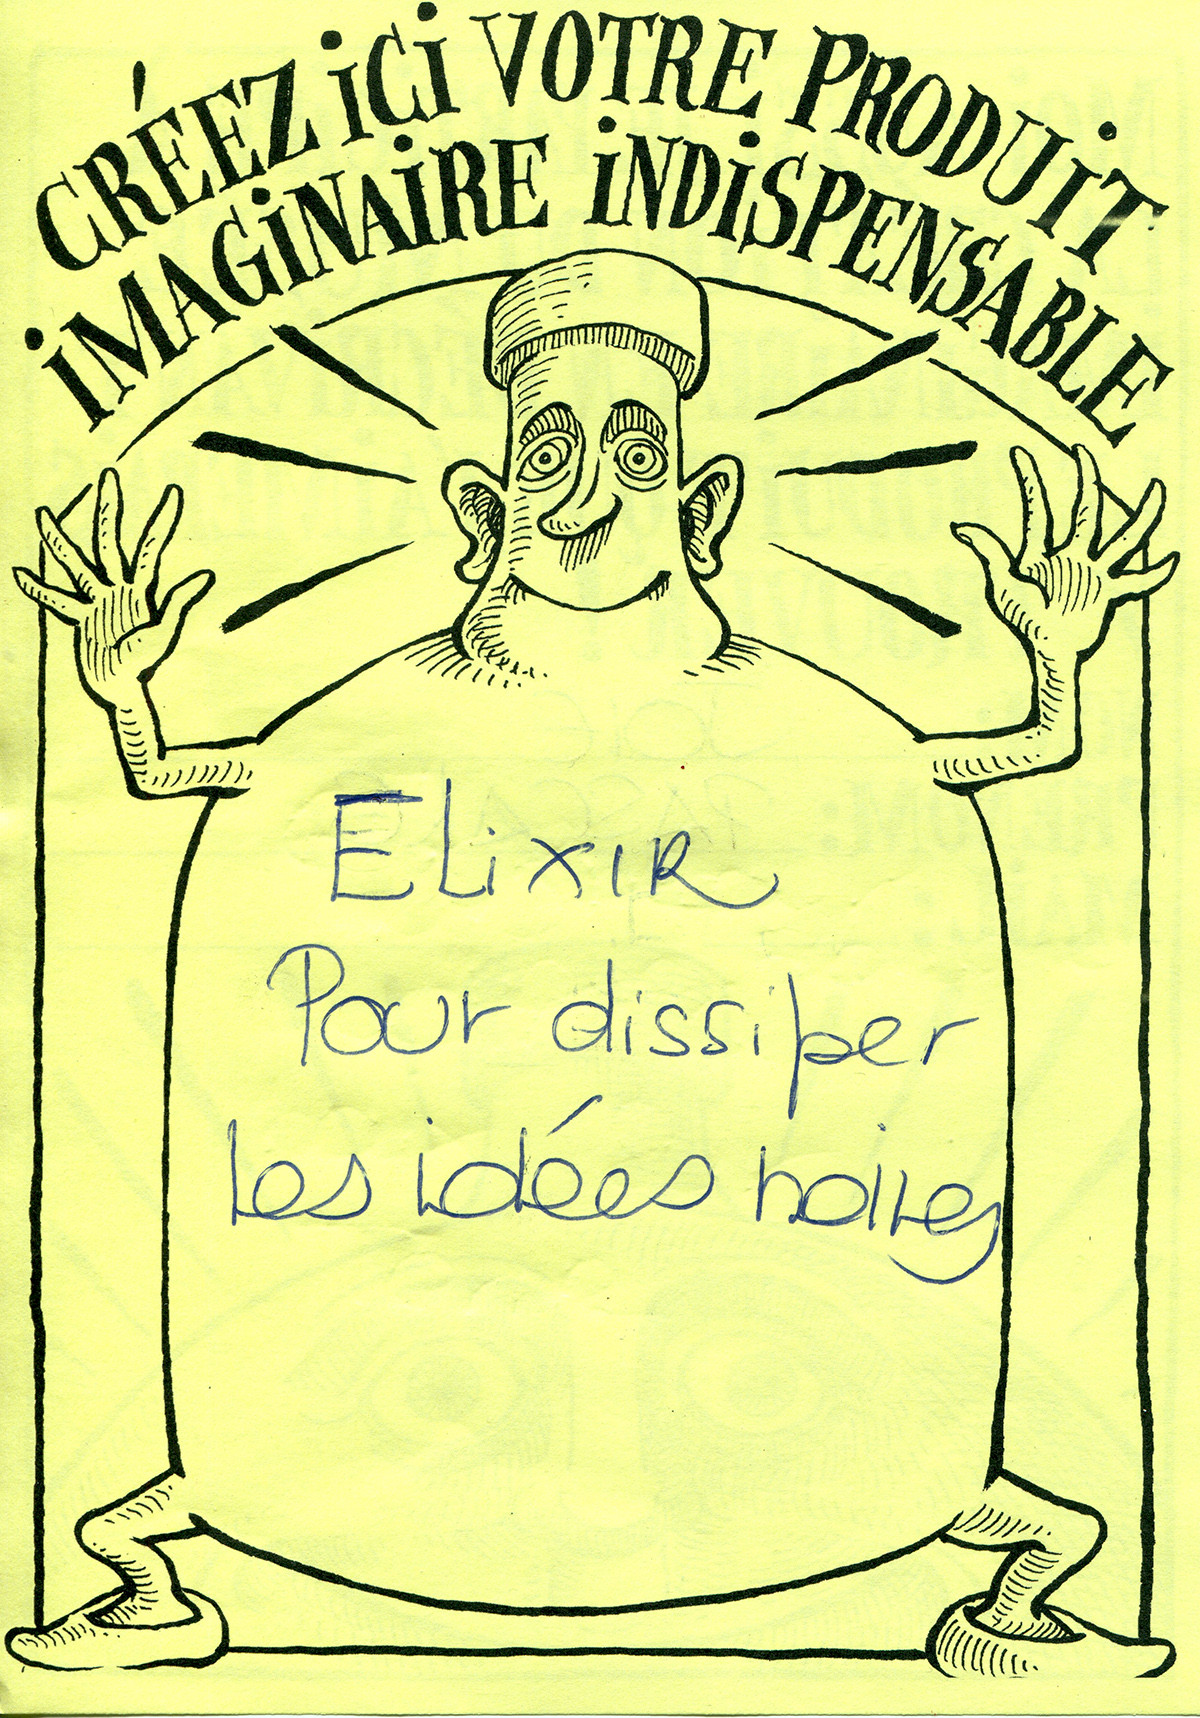 CRÉEZ iCi VOTRE PRODUiT
iMAGiNAiRE iNDiSPENSABLE
ELixIR
Pour dissiper
les idées noires